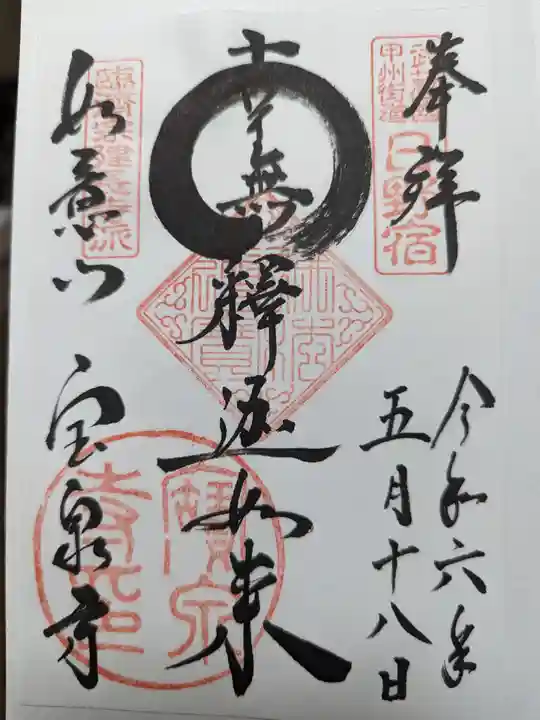 奉拜
甲州街道
日野宿
令和六年
五月十八日
南無釋迦如来
如意山
宝泉寺
臨済宗建長寺派
寶泉寺印